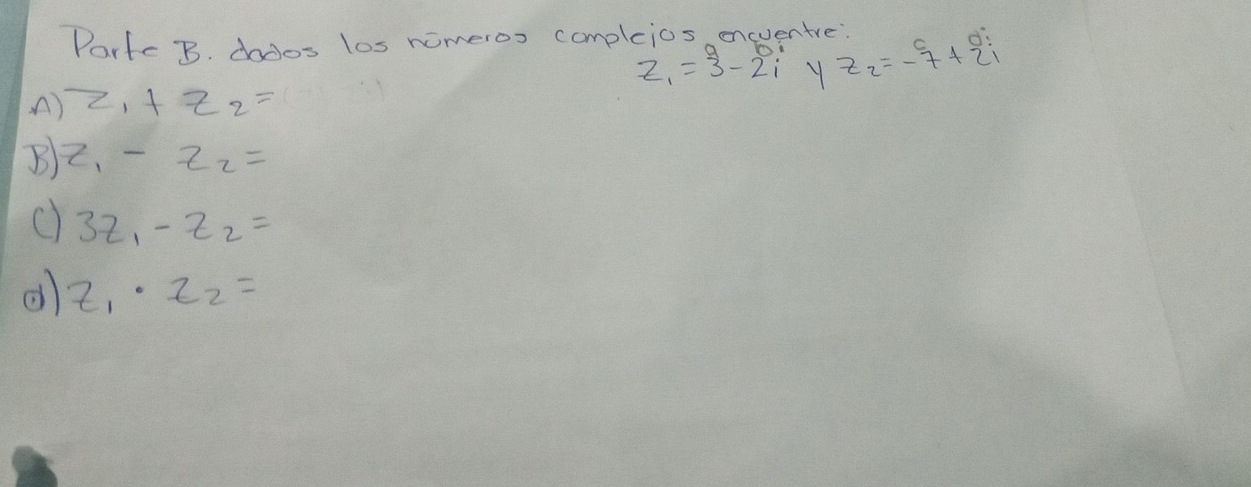 Parte B. dados los números complejos encuentre:
a bi c di
z₁ = 3 - 2i y z₂ = -7 + 2i
A) z₁ + z₂ =
B) z₁ - z₂ =
C) 3z₁ - z₂ =
d) z₁ · z₂ =